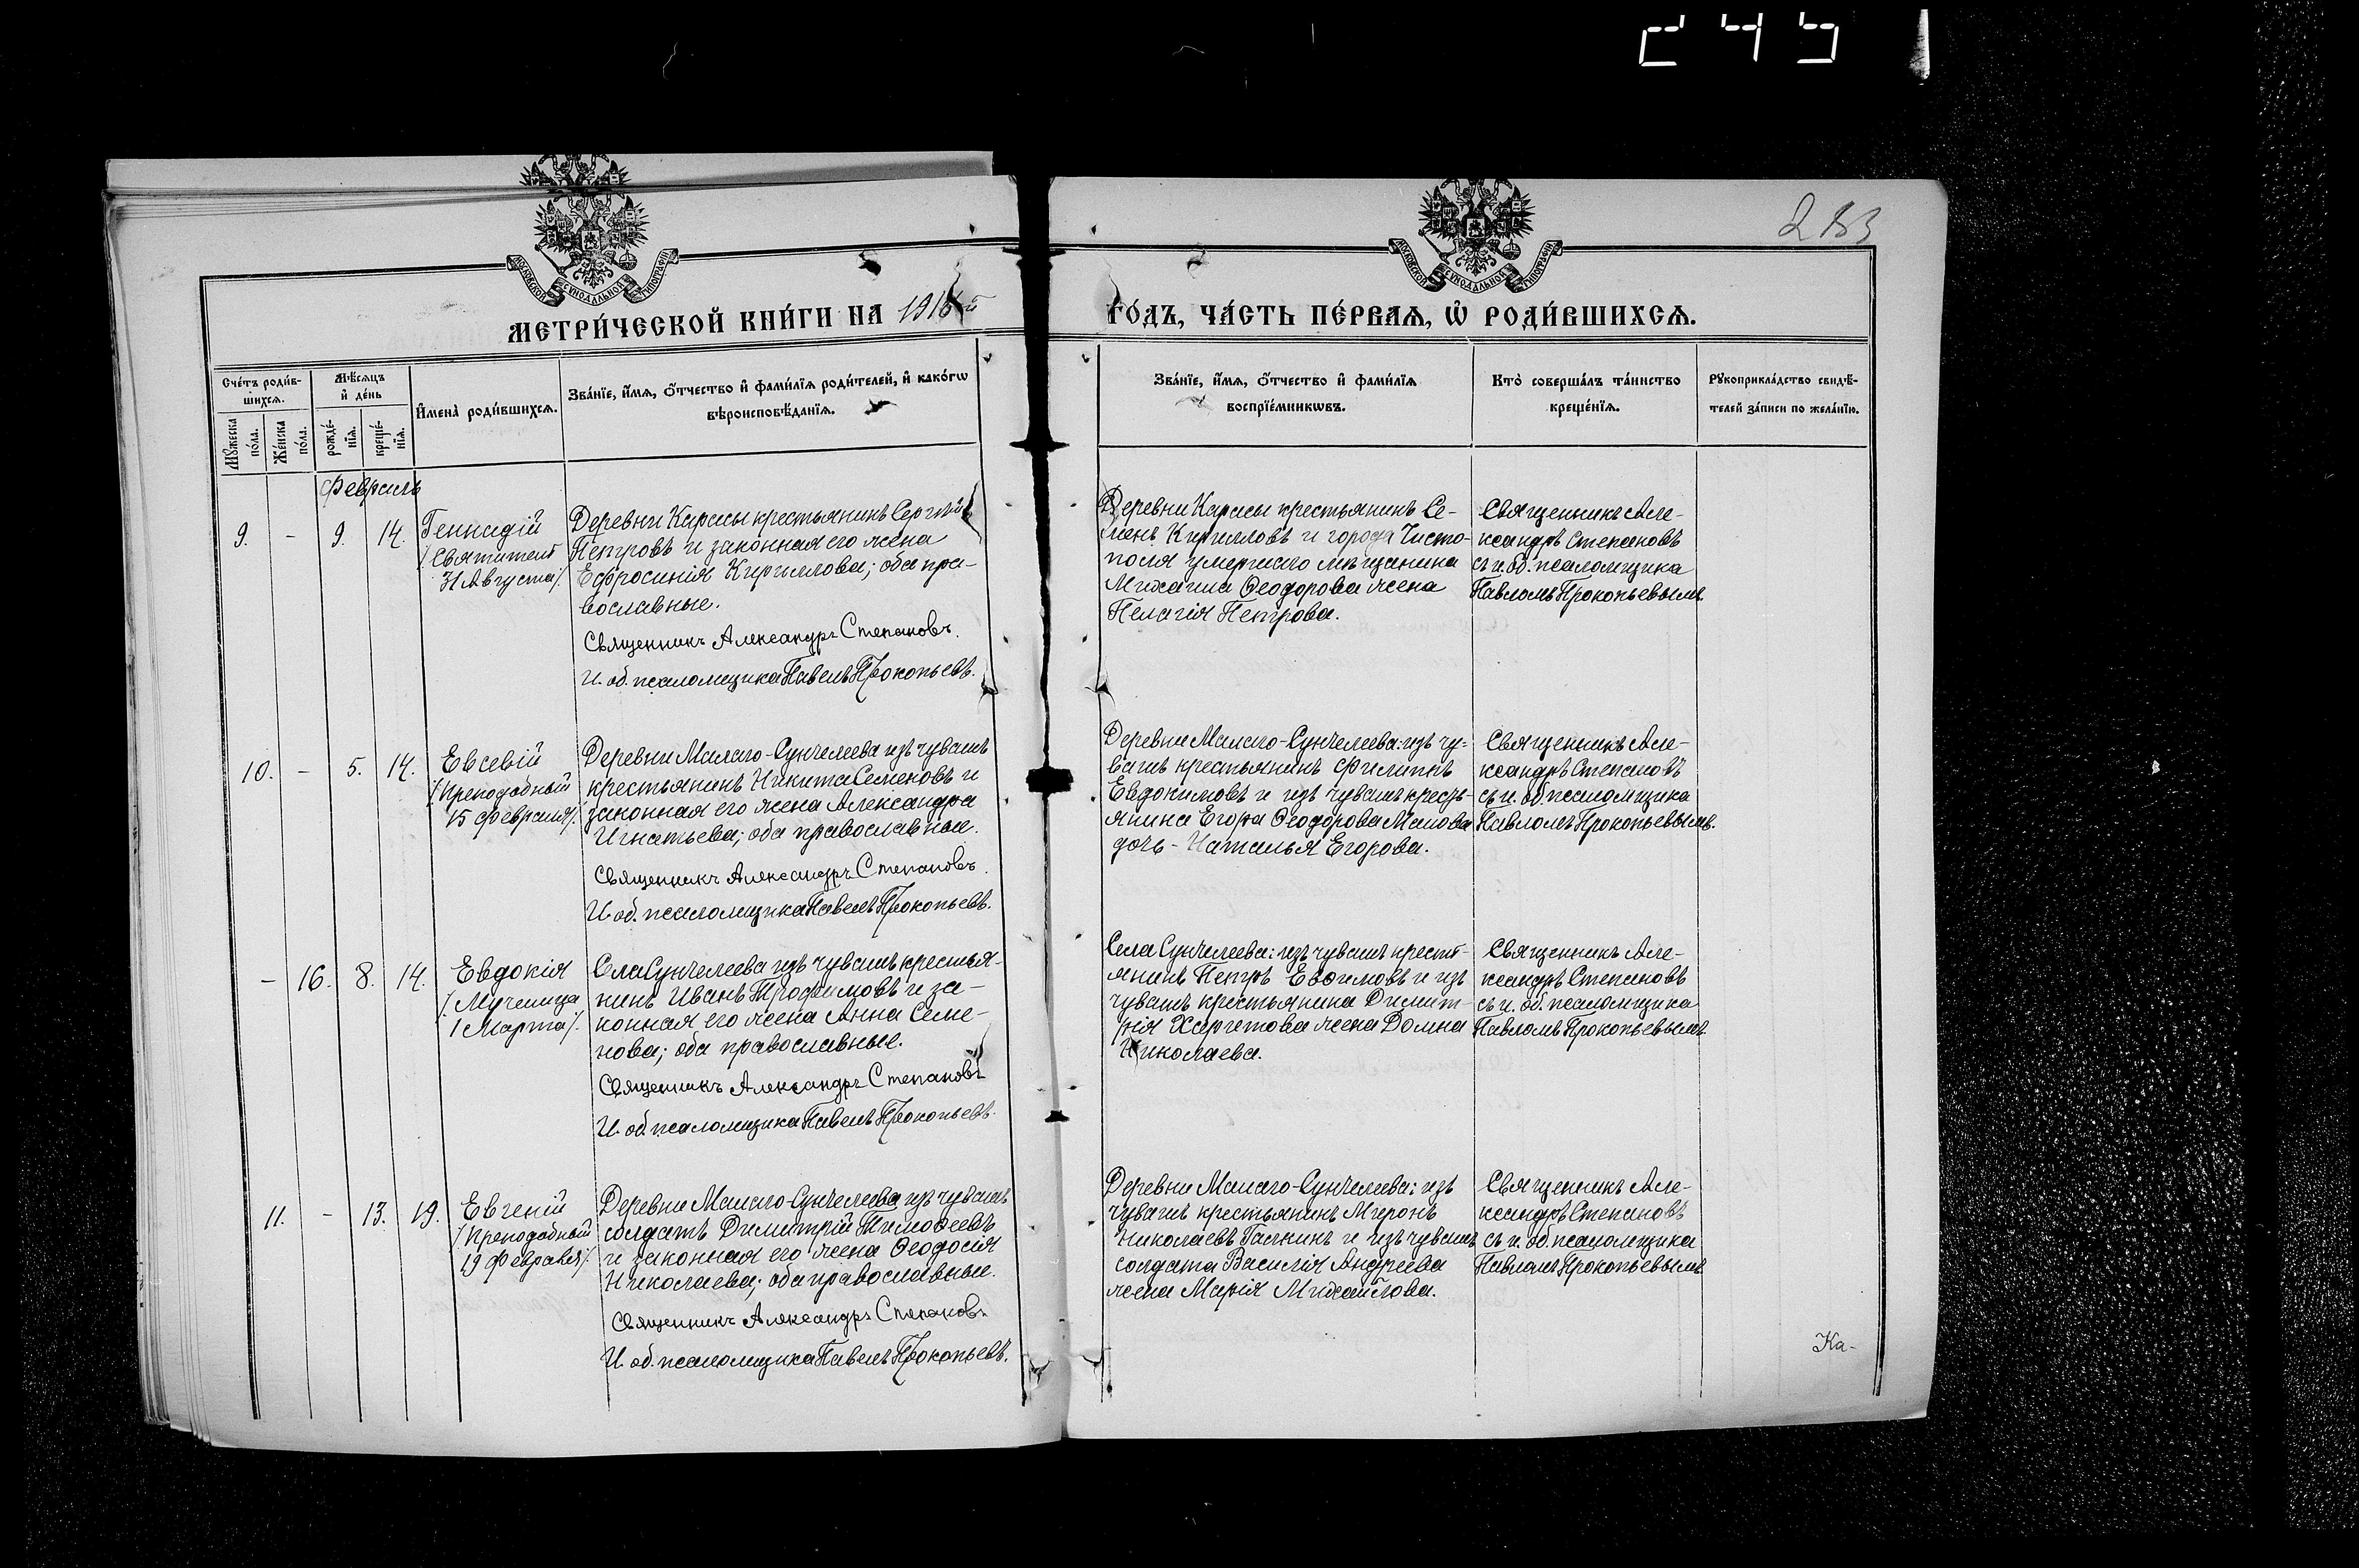 245
283
МОСКОВСКОЙ СѴНОДАЛЬНОЙ ТИПОГРАФІИ
МОСКОВСКОЙ СѴНОДАЛЬНОЙ ТИПОГРАФІИ
МЕТРИ́ЧЕСКОЙ КНИ́ГИ НА 1916 й
ГО́ДЪ, ЧА́СТЬ ПЕ́РВАѦ, Ѽ РОДИ́ВШИХСѦ.
Сче́тъ роди́в-
шихсѧ.
Мꙋ́жеска
по́ла.
Же́нска
по́ла.
Мѣ́сѧцъ
и҆ де́нь
рожде́-
нїѧ.
креще́-
нїѧ.
И҆мена̀ роди́вшихсѧ.
Зва́нїе, и҆́мѧ, ѻ҆́тчество и҆ фами́лїѧ роди́телей, и҆ како́гѡ
вѣроисповѣ́данїѧ.
Зва́нїе, и҆́мѧ, ѻ҆́тчество и҆ фами́лїѧ
воспрїе́мникѡвъ.
Кто̀ соверша́лъ та́инство
креще́нїѧ.
Рꙋкоприкла́дство свидѣ́-
телей за́писи по жела́нїю.
Февраль
9. - 9. 14.
Геннадій
/Святитель
31 Августа/.
Деревни Карасы крестьянинъ Сергѣй
Петровъ и законная его жена
Ефросинія Кириллова; оба пра-
вославные.
Священникъ Александръ Степановъ.
И. об. псаломщика Павелъ Прокопьевъ.
Деревни Карасы крестьянинъ Се-
менъ Кирилловъ и города Чисто-
поля умершаго мѣщанина
Михаила Ѳеодорова жена
Пелагія Петрова.
Священникъ Але-
ксандръ Степановъ
съ и. об. псаломщика
Павломъ Прокопьевымъ.
10. - 5. 14.
Евсевій
/Преподобный
15 февраля/.
Деревни Малаго-Сунчелеева изъ чувашъ
крестьянинъ Никита Семеновъ и
законная его жена Александра
Игнатьева; оба православные.
Священникъ Александръ Степановъ.
И. об. псаломщика Павелъ Прокопьевъ.
Деревни Малаго-Сунчелеева: изъ чу-
вашъ крестьянинъ Филиппъ
Евдокимовъ и изъ чувашъ кресть-
янина Егора Ѳеодорова
дочь - Наталья Егорова.
Священникъ Але-
ксандръ Степановъ
съ и. об. псаломщика
Павломъ Прокопьевымъ.
- 16. 8. 14.
Евдокія
/Мученица
1 Марта/.
Села Сунчелеева изъ чувашъ крестья-
нинъ Иванъ Трофимовъ и за-
конная его жена Анна Семе-
нова; оба православные.
Священникъ Александръ Степановъ
И. об. псаломщика Павелъ Прокопьевъ.
Села Сунчелеева: изъ чувашъ кресть-
янинъ Петръ Евѳимовъ и изъ
чувашъ крестьянина Димит-
рія жена Домна
Николаева.
Священникъ Але-
ксандръ Степановъ
съ и. об. псаломщика
Павломъ Прокопьевымъ
11. - 13. 19.
Евгеній
/Преподобный
19 февраля/.
Деревни Малаго-Сунчелеева изъ чувашъ
солдатъ Димитрій Тимоѳеевъ
и законная его жена Ѳеодосія
Николаева; оба православные.
Священникъ Александръ Степановъ
И. об. псаломщика Павелъ Прокопьевъ.
Деревни Малаго-Сунчелеева: изъ
чувашъ крестьянинъ Миронъ
Николаевъ Галкинъ и изъ чувашъ
солдата Василія Андреева
жена Марія Михайлова.
Священникъ Але-
ксандръ Степановъ
съ и. об. псаломщика
Павломъ Прокопьевымъ
Ка-